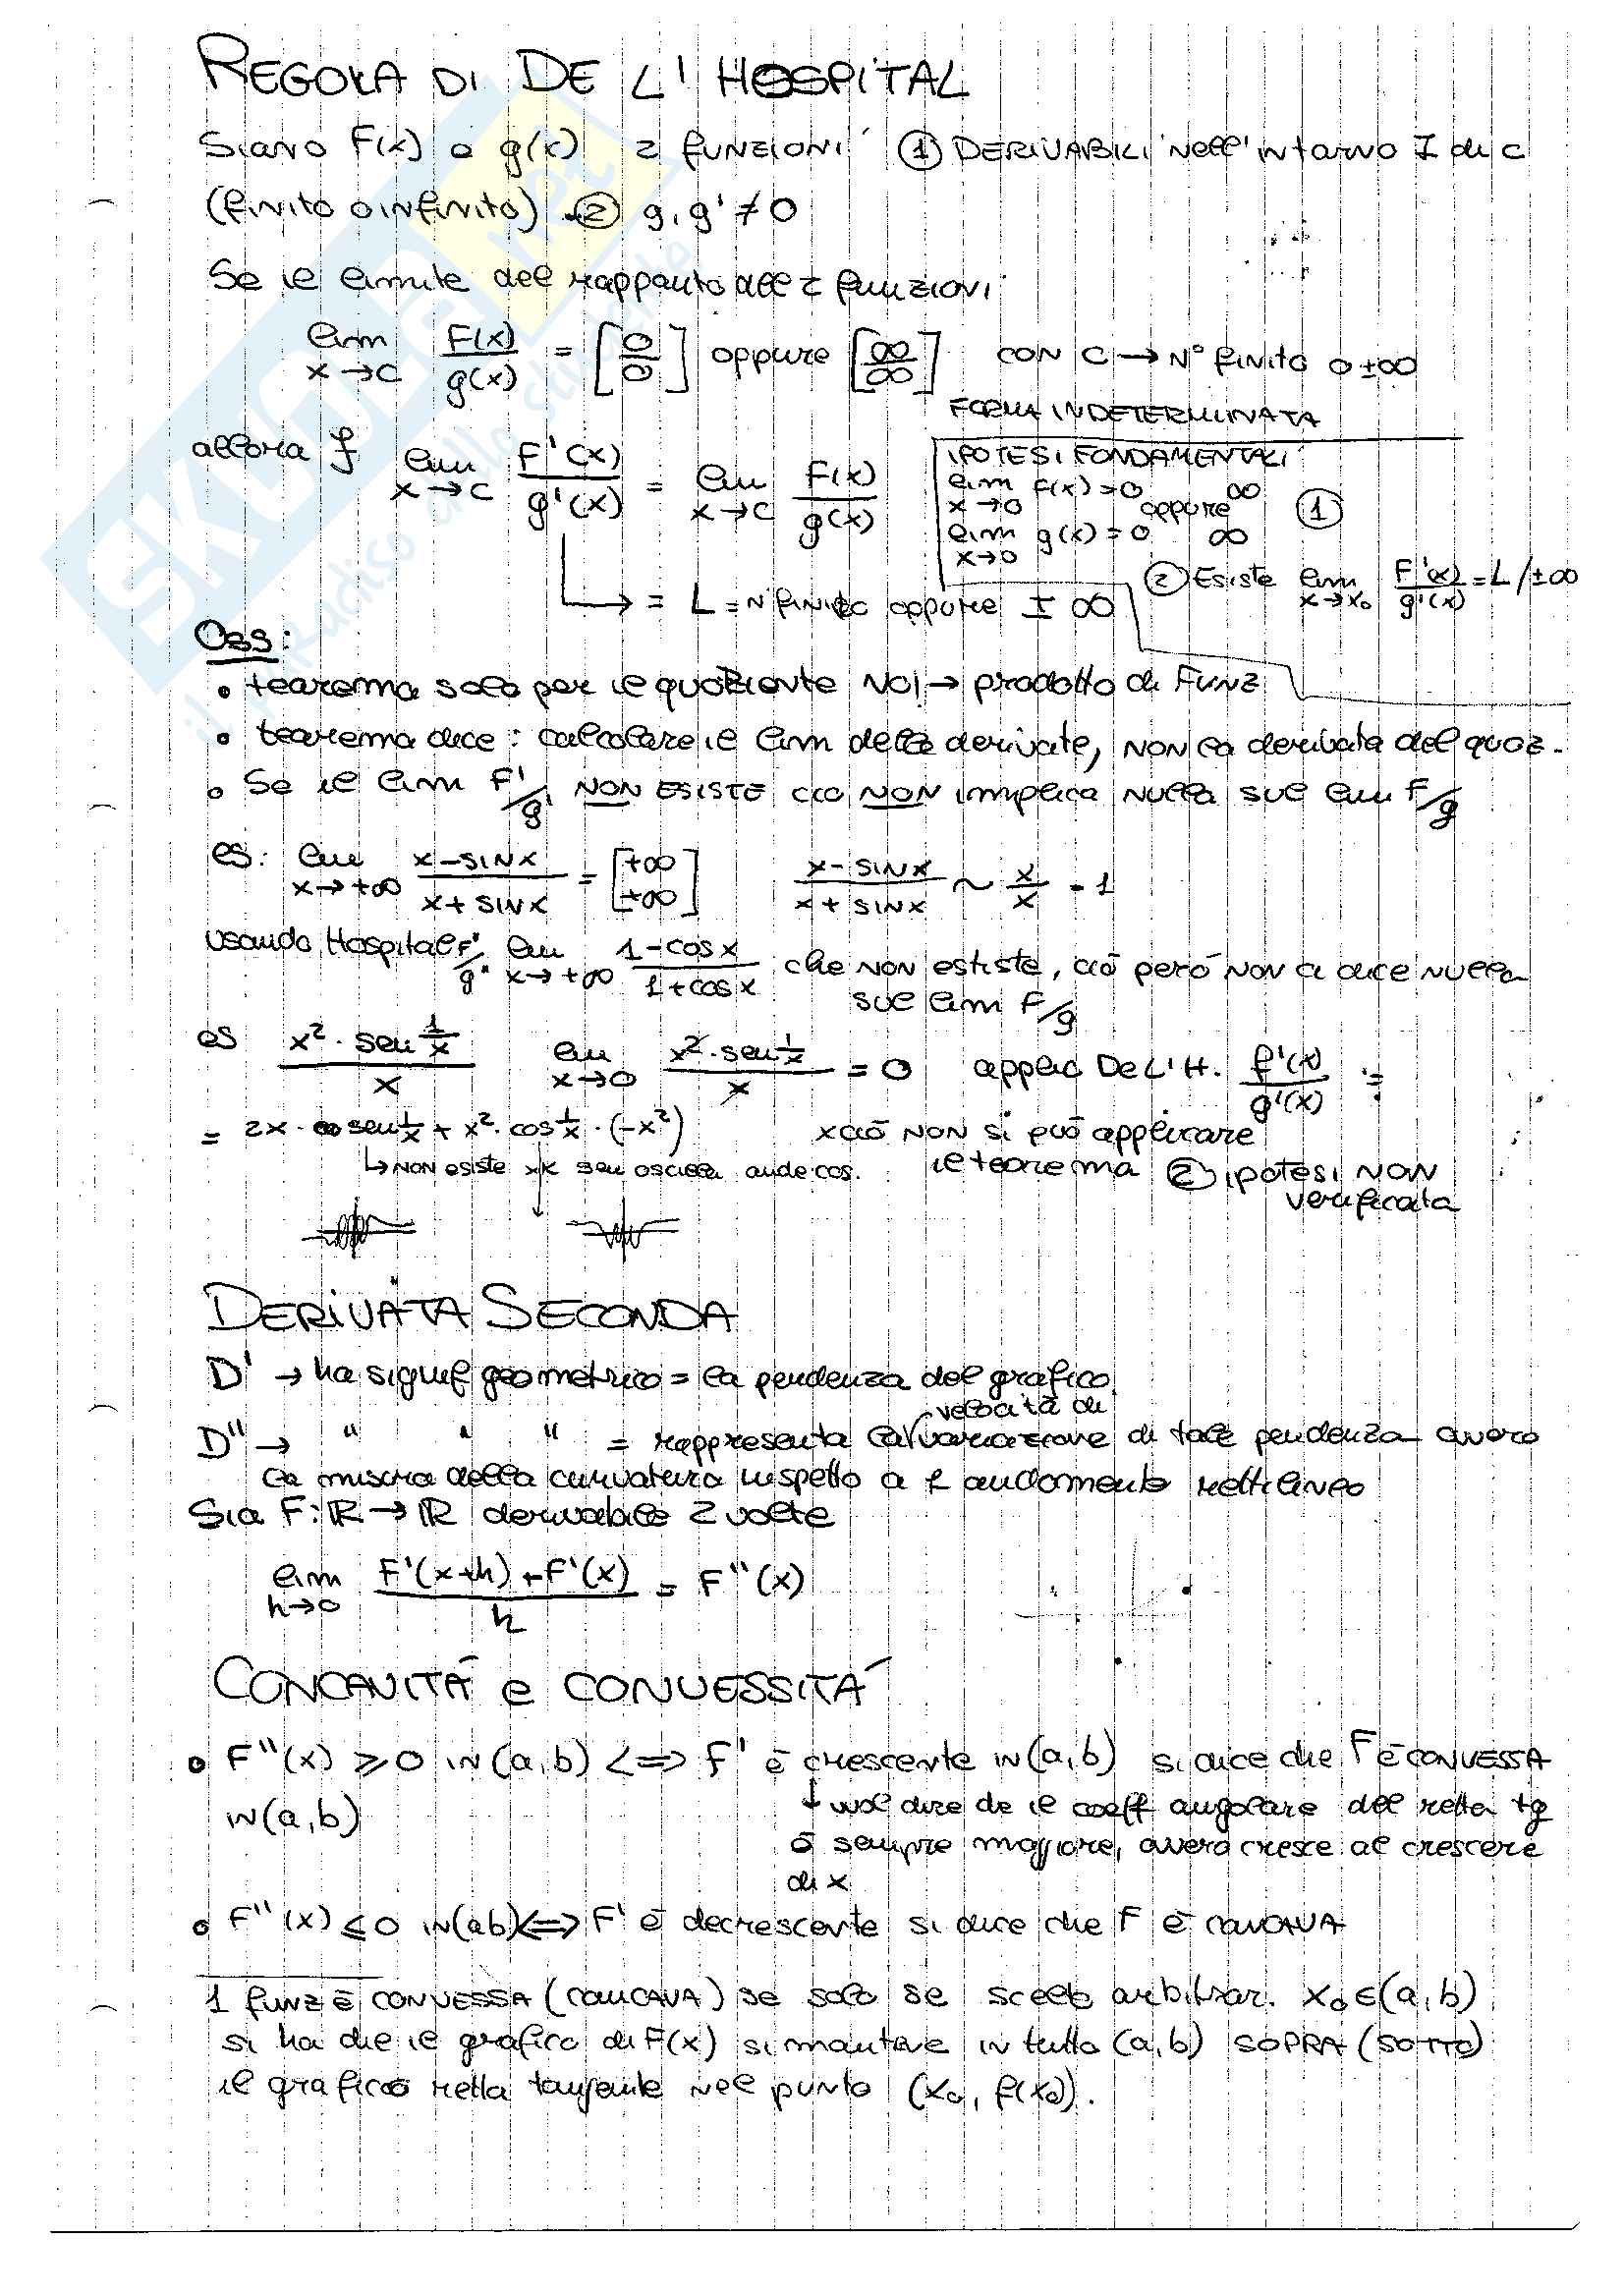 REGOLA DI DE L'HOSPITAL
Siano F(x) e g(x) 2 FUNZIONI ① DERIVABILI nell'intorno I di c
(finito o infinito) ② g, g' ≠ 0
Se il limite del rapporto delle 2 funzioni
lim x→c F(x)/g(x) = [0/0] oppure [∞/∞] CON C → N° finito o ±∞
FORMA INDETERMINATA
allora ∃ lim x→c F'(x)/g'(x) = lim x→c F(x)/g(x)
→ = L = N° finito oppure ± ∞
IPOTESI FONDAMENTALI
lim x→0 f(x) = 0 oppure ∞
lim x→0 g(x) = 0 ∞ ①
② Esiste lim x→x₀ F'(x)/g'(x) = L/±∞
Oss:
• teorema solo per il quoziente NO! → prodotto di FUNZ
• teorema dice: calcolare il lim delle derivate, NON la derivata del quoz.
• Se il lim F'/g' NON ESISTE ciò NON implica nulla sul lim F/g
es: lim x→+∞ x-SINX/x+SINX = [+∞/+∞] x-SINX/x+SINX ~ x/x = 1
usando Hospital F'/g' lim x→+∞ 1-cosx/1+cosx che NON esiste, ciò però NON ci dice nulla
sul lim F/g
es x²·sen 1/x / x lim x→0 x²·sen 1/x / x = 0 applic De L'H. f'(x)/g'(x) =
= 2x · sen 1/x + x² · cos 1/x · (-x²) xciò NON si può applicare
↳ NON esiste xk sen oscilla anche cos. il teorema ② ipotesi NON
verificata
DERIVATA SECONDA
D' → ha signif geometrico = la pendenza del grafico
velocità di
D'' → " " " = rappresenta la variazione di tale pendenza ovvero
la misura della curvatura rispetto a 1 andamento rettilineo
Sia F: ℝ → ℝ derivabile 2 volte
lim h→0 F'(x+h) - F'(x) / h = F''(x)
CONCAVITÀ e CONVESSITÀ
• F''(x) ⩾ 0 IN (a,b) <=> F' è crescente IN (a,b) si dice che F è CONVESSA
IN (a,b)
↓ vuol dire che il coeff angolare del retta tg
è sempre maggiore, ovvero cresce al crescere
di x
• F''(x) ⩽ 0 IN (ab) <=> F' è decrescente si dice che F è CONCAVA
1 funz è CONVESSA (CONCAVA) se solo se scelto arbitrar. x₀ ∈ (a,b)
si ha che il grafico di F(x) si mantiene in tutto (a,b) SOPRA (SOTTO)
il grafico retta tangente nel punto (x₀, f(x₀)).